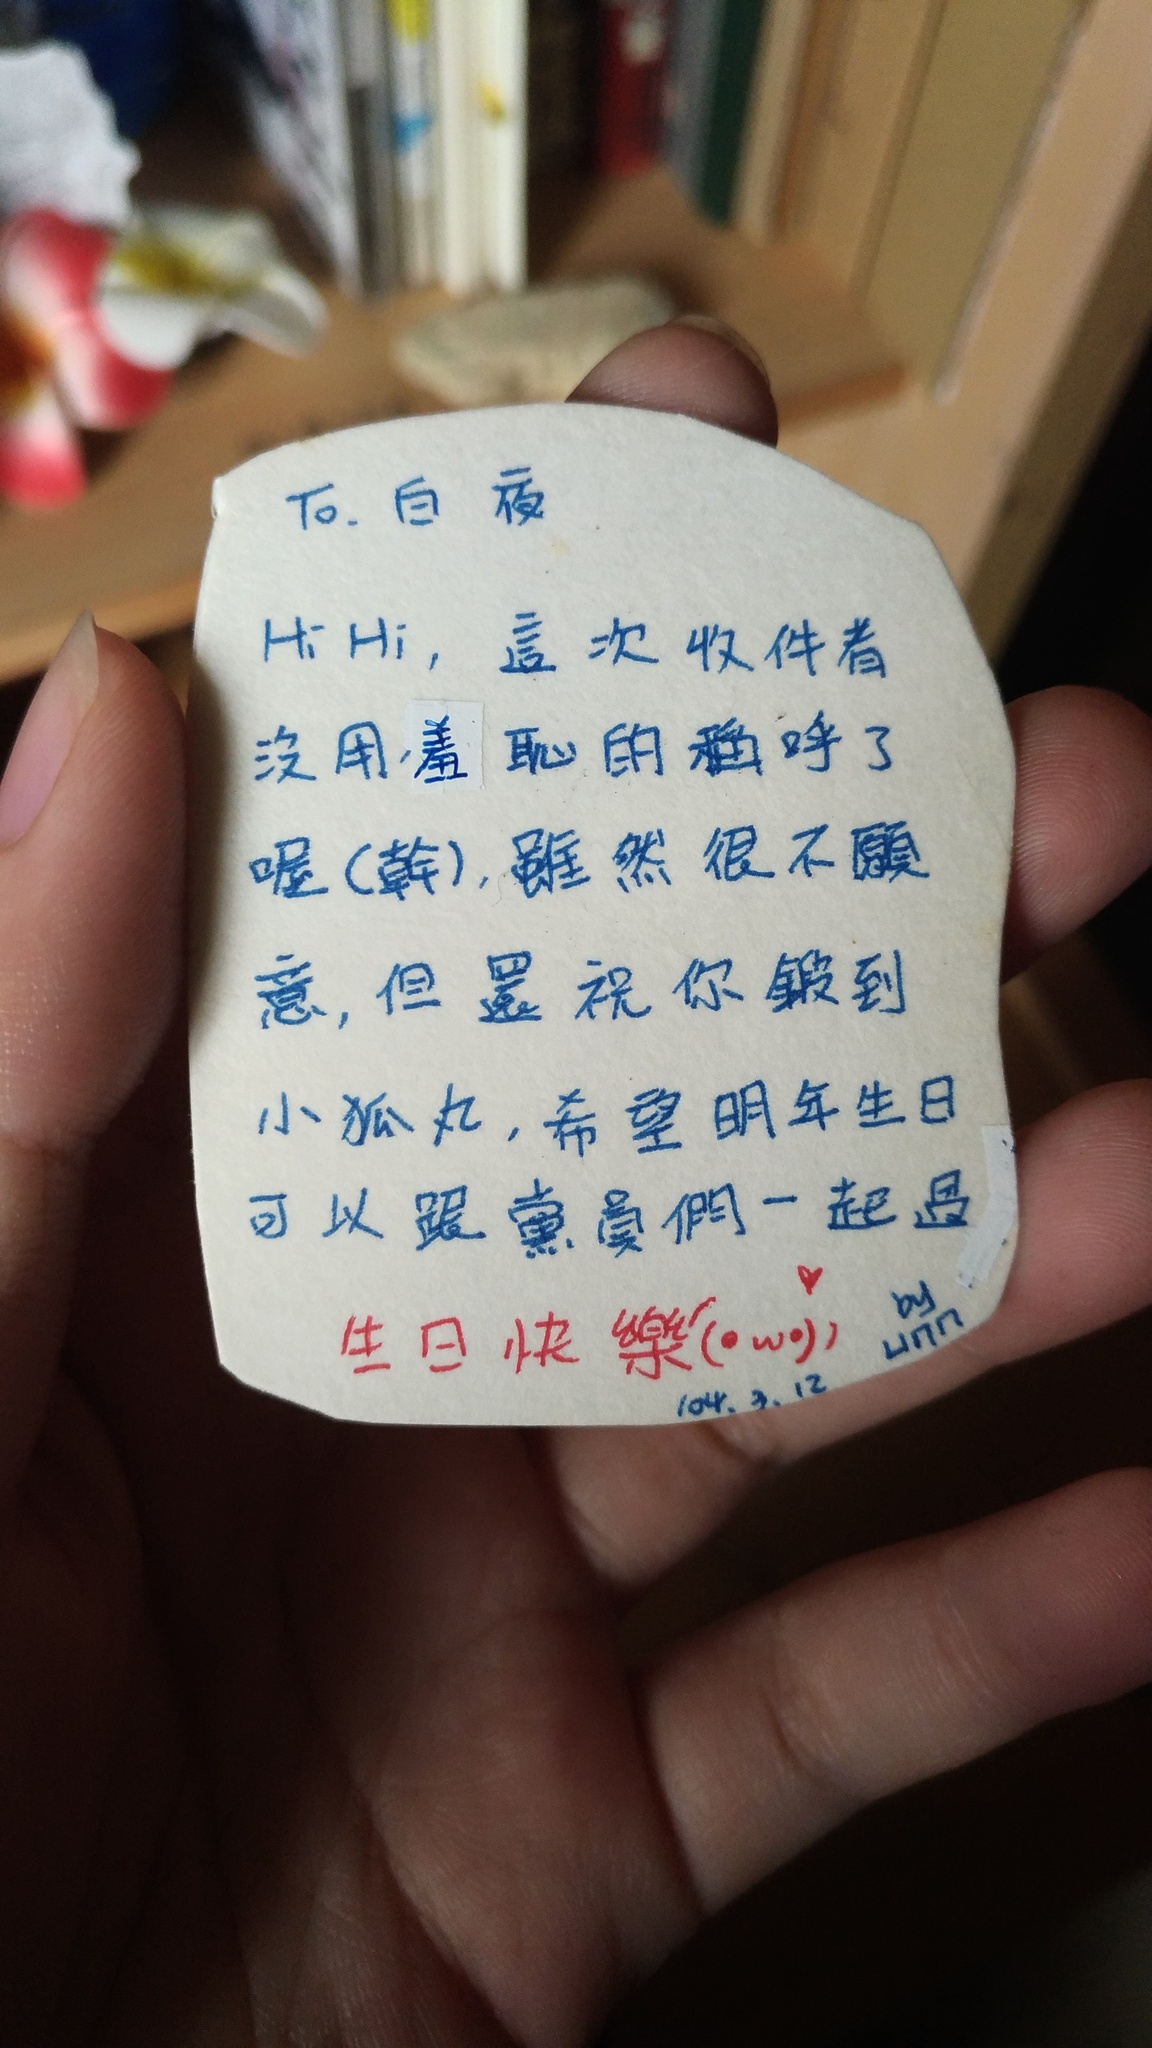 To. 白夜
Hi Hi, 這次收件者
沒用羞恥的稱呼了
喔(幹), 雖然很不願
意, 但還祝你鍛到
小狐丸, 希望明年生日
可以跟黨員們一起過
生日快樂(•w•), ♥
by
104.3.12